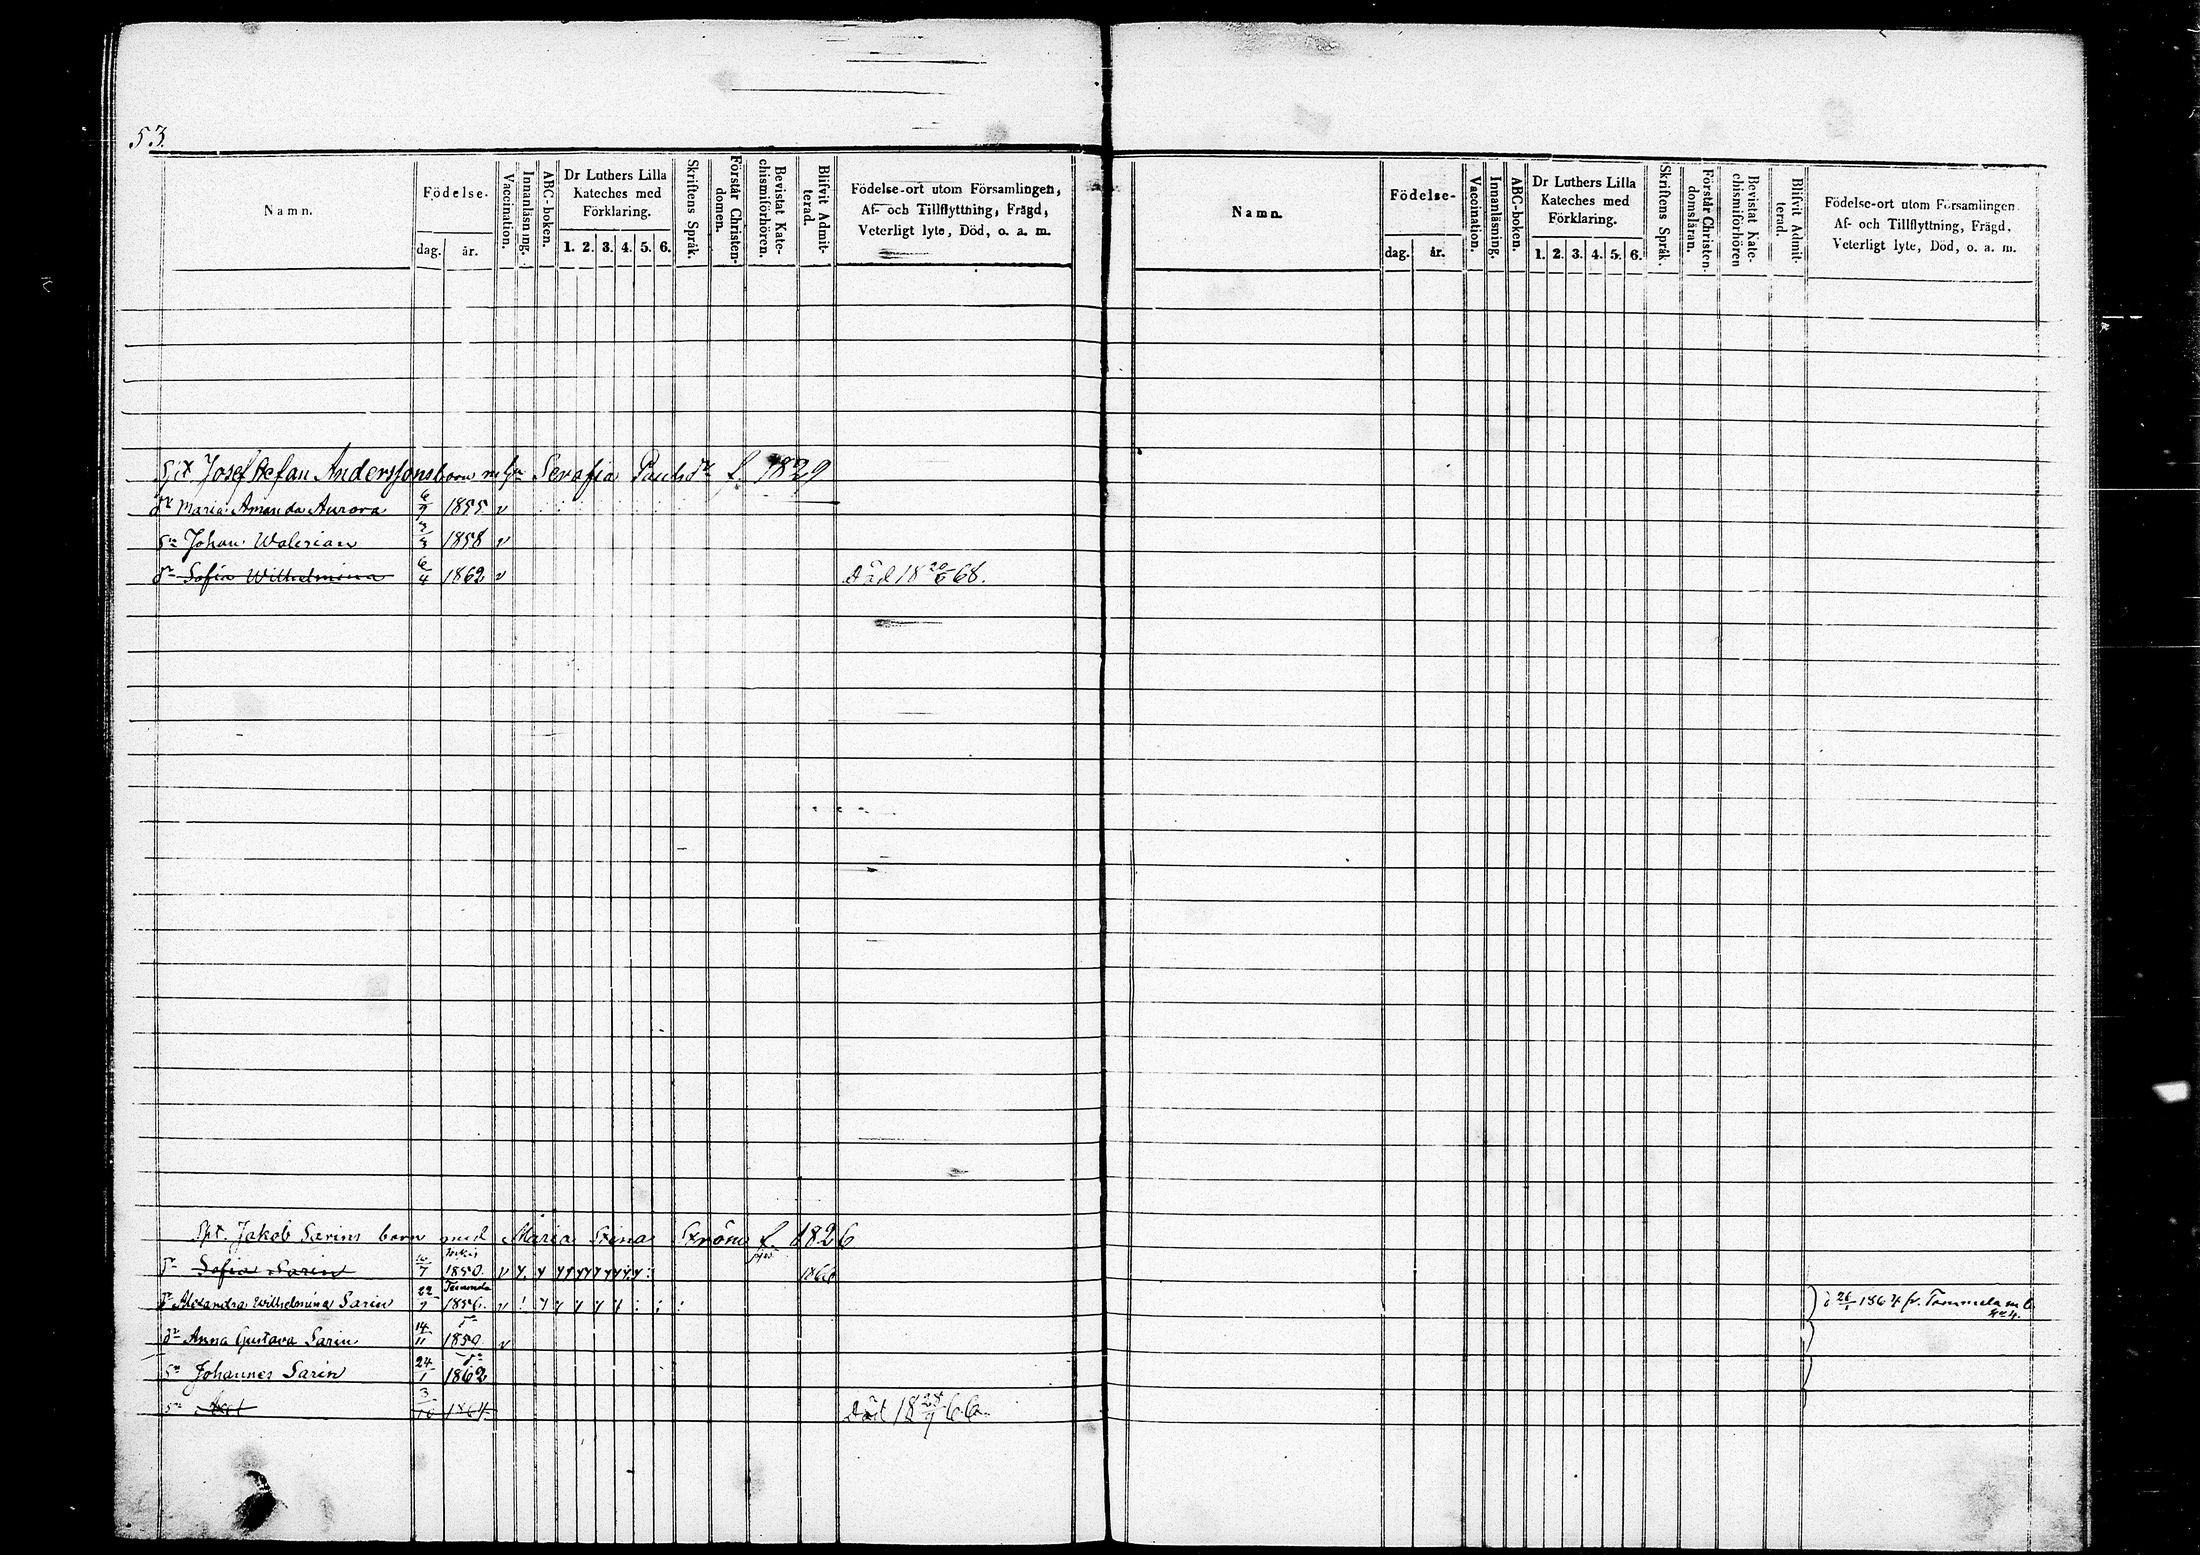 53.
Namn.
Födelse-
dag.
år.
Vaccination.
Innanläsning.
ABC-boken.
Dr Luthers Lilla
Kateches med
Förklaring.
1. 2. 3. 4. 5. 6.
Skriftens Språk.
Förstår Christen-
domen.
Bevistat Kate-
chismiförhören.
Blifvit Admit-
terad.
Födelse-ort utom Församlingen,
Af- och Tillflyttning, Frägd,
Veterligt lyte, Död, o. a. m.
Josef Stefan Anderssons barn Serafia f. 1829
dr Maria Amanda Aurora 6/9 1855 v
sn Johan Walerian 1858 v
dr Sofia Wilhelmina 6/4 1862 v Död 18 20/6 68.
Spt. Jakob Sarins barn med Maria Stina Ström f. 1826
Sofia Sarin 1850. v
Tammela
dr Alexandra Wilhelmina Sarin 22/7 1856. v
dr Anna Gustava Sarin 14/11 1859 v
sn Johannes Sarin 24/1 1862
sn Axel 3/10 1864 Död 1866.
Namn.
Födelse-
dag.
år.
Vaccination.
Innanläsning.
ABC-boken.
Dr Luthers Lilla
Kateches med
Förklaring.
1. 2. 3. 4. 5. 6.
Skriftens Språk.
Förstår Christen-
domsläran.
Bevistat Kate-
chismiförhören
Blifvit Admit-
terad.
Födelse-ort utom Församlingen
Af- och Tillflyttning, Frägd,
Veterligt lyte, Död, o. a. m.
1864 fr. Tammela